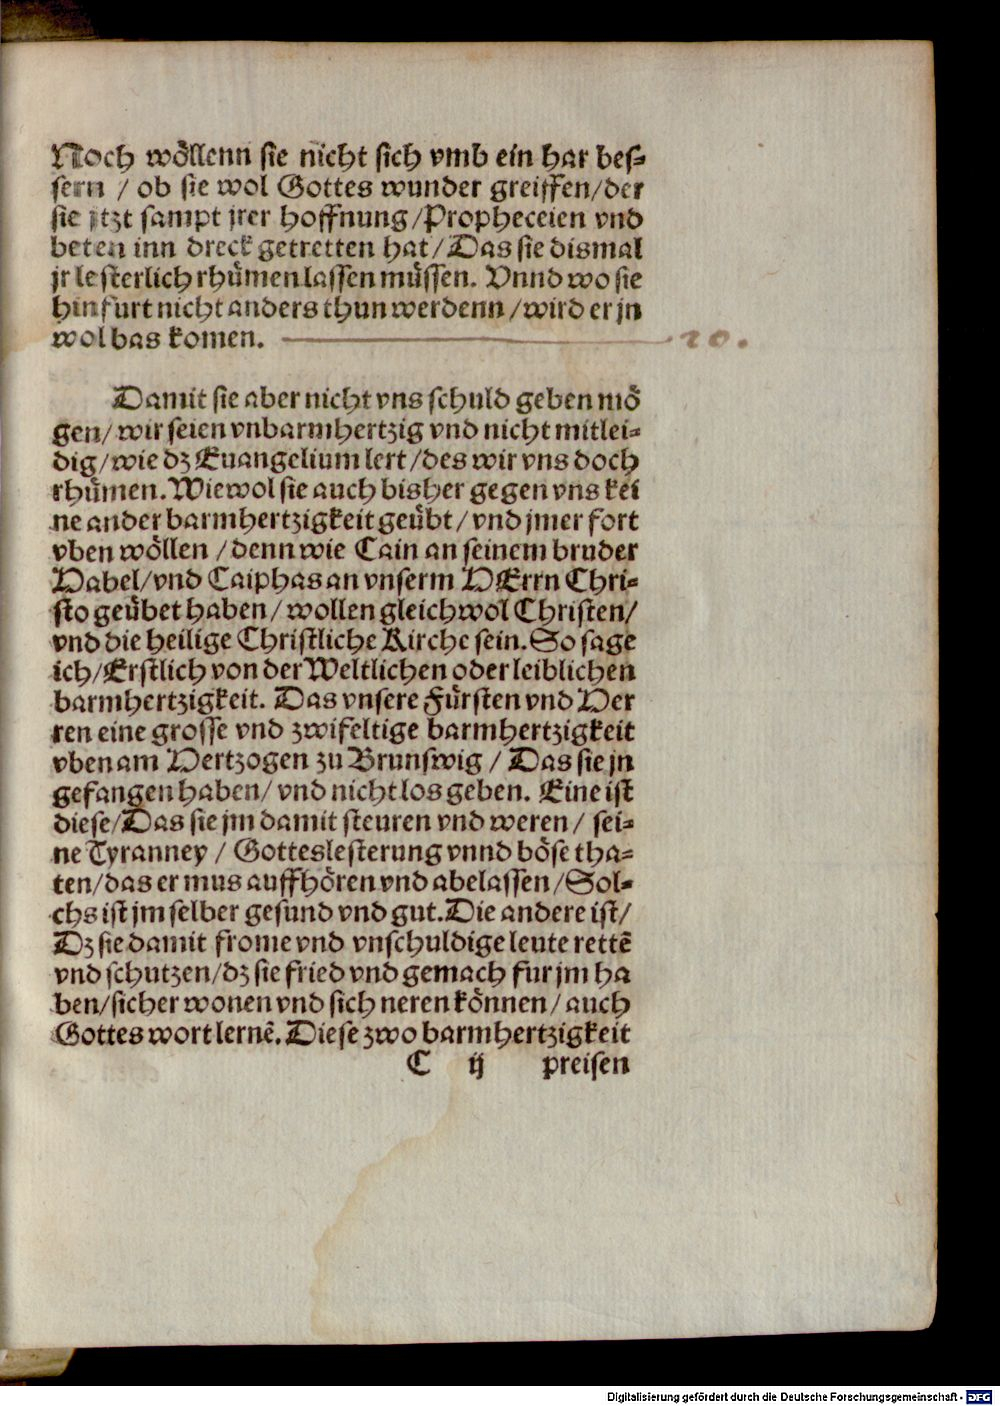 Noch wöllenn sie nicht sich vmb ein har bes-
sern / ob sie wol Gottes wunder greiffen/der
sie jtzt sampt jrer hoffnung/Propheceien vnd
beten inn dreck getretten hat/Das sie dismal
jr lesterlich rhümen lassen müssen. Vnnd wo sie
hinfurt nicht anders thun werdenn/wird er jn
wol bas komen. 20.
Damit sie aber nicht vns schuld geben mö
gen/wir seien vnbarmhertzig vnd nicht mitlei-
dig/wie dz Euangelium lert/des wir vns doch
rhümen. Wiewol sie auch bisher gegen vns kei
ne ander barmhertzigkeit geübt/vnd jmer fort
vben wöllen /denn wie Cain an seinem bruder
Habel/vnd Caiphas an vnserm HErrn Chri-
sto geübet haben/wollen gleichwol Christen/
vnd die heilige Christliche Kirche sein. So sage
ich/Erstlich von der Weltlichen oder leiblichen
barmhertzigkeit. Das vnsere Fürsten vnd Her
ren eine grosse vnd zwifeltige barmhertzigkeit
vben am Hertzogen zu Brunswig / Das sie jn
gefangen haben/vnd nicht los geben. Eine ist
diese/Das sie jm damit steuren vnd weren/ sei-
ne Tyranney / Gotteslesterung vnnd böse tha-
ten/das er mus auffhören vnd abelassen/Sol-
chs ist jm selber gesund vnd gut. Die andere ist/
Dz sie damit frome vnd vnschuldige leute rettē
vnd schutzen/dz sie fried vnd gemach fur jm ha
ben/sicher wonen vnd sich neren können/auch
Gottes wort lernē. Diese zwo barmhertzigkeit
C ij preisen
Digitalisierung gefördert durch die Deutsche Forschungsgemeinschaft - DFG